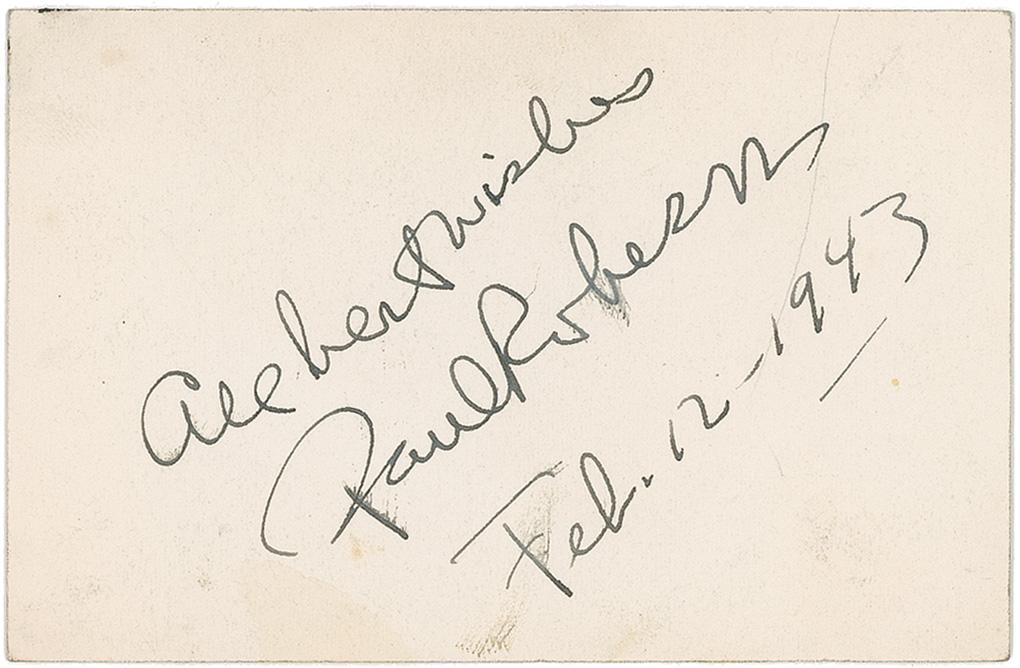 All best wishes
Paul Robeson
Feb. 12 - 1943